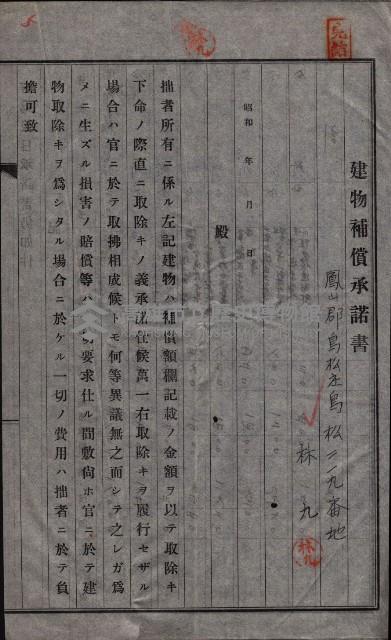 建物補償承諾書
鳳山郡鳥松庄鳥松二一九番地
林九
昭和　年　月　日
殿
拙者所有ニ係ル左記建物ハ補償額欄記載ノ金額ヲ以テ取除キ
下命ノ際直ニ取除キノ義承諾仕候萬一右取除キヲ履行セザル
場合ハ官ニ於テ取拂相成候トモ何等異議無之而シテ之レガ爲
メニ生ズル損害ノ賠償等ハ一切要求仕ル間敷尙ホ官ニ於テ建
物取除キヲ爲シタル場合ニ於ケル一切ノ費用ハ拙者ニ於テ負
擔可致